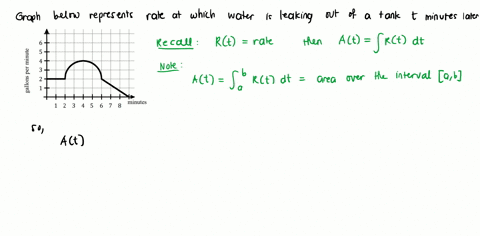 Graph below represents rate at which water is leaking out of a tank t minutes later
Recall: R(t) = rate then A(t) = ∫R(t) dt
Note: A(t) = ∫_a^b R(t) dt = area over the interval [a,b]
gallons per minute
6
5
4
3
2
1
1 2 3 4 5 6 7 8 minutes
so,
A(t)